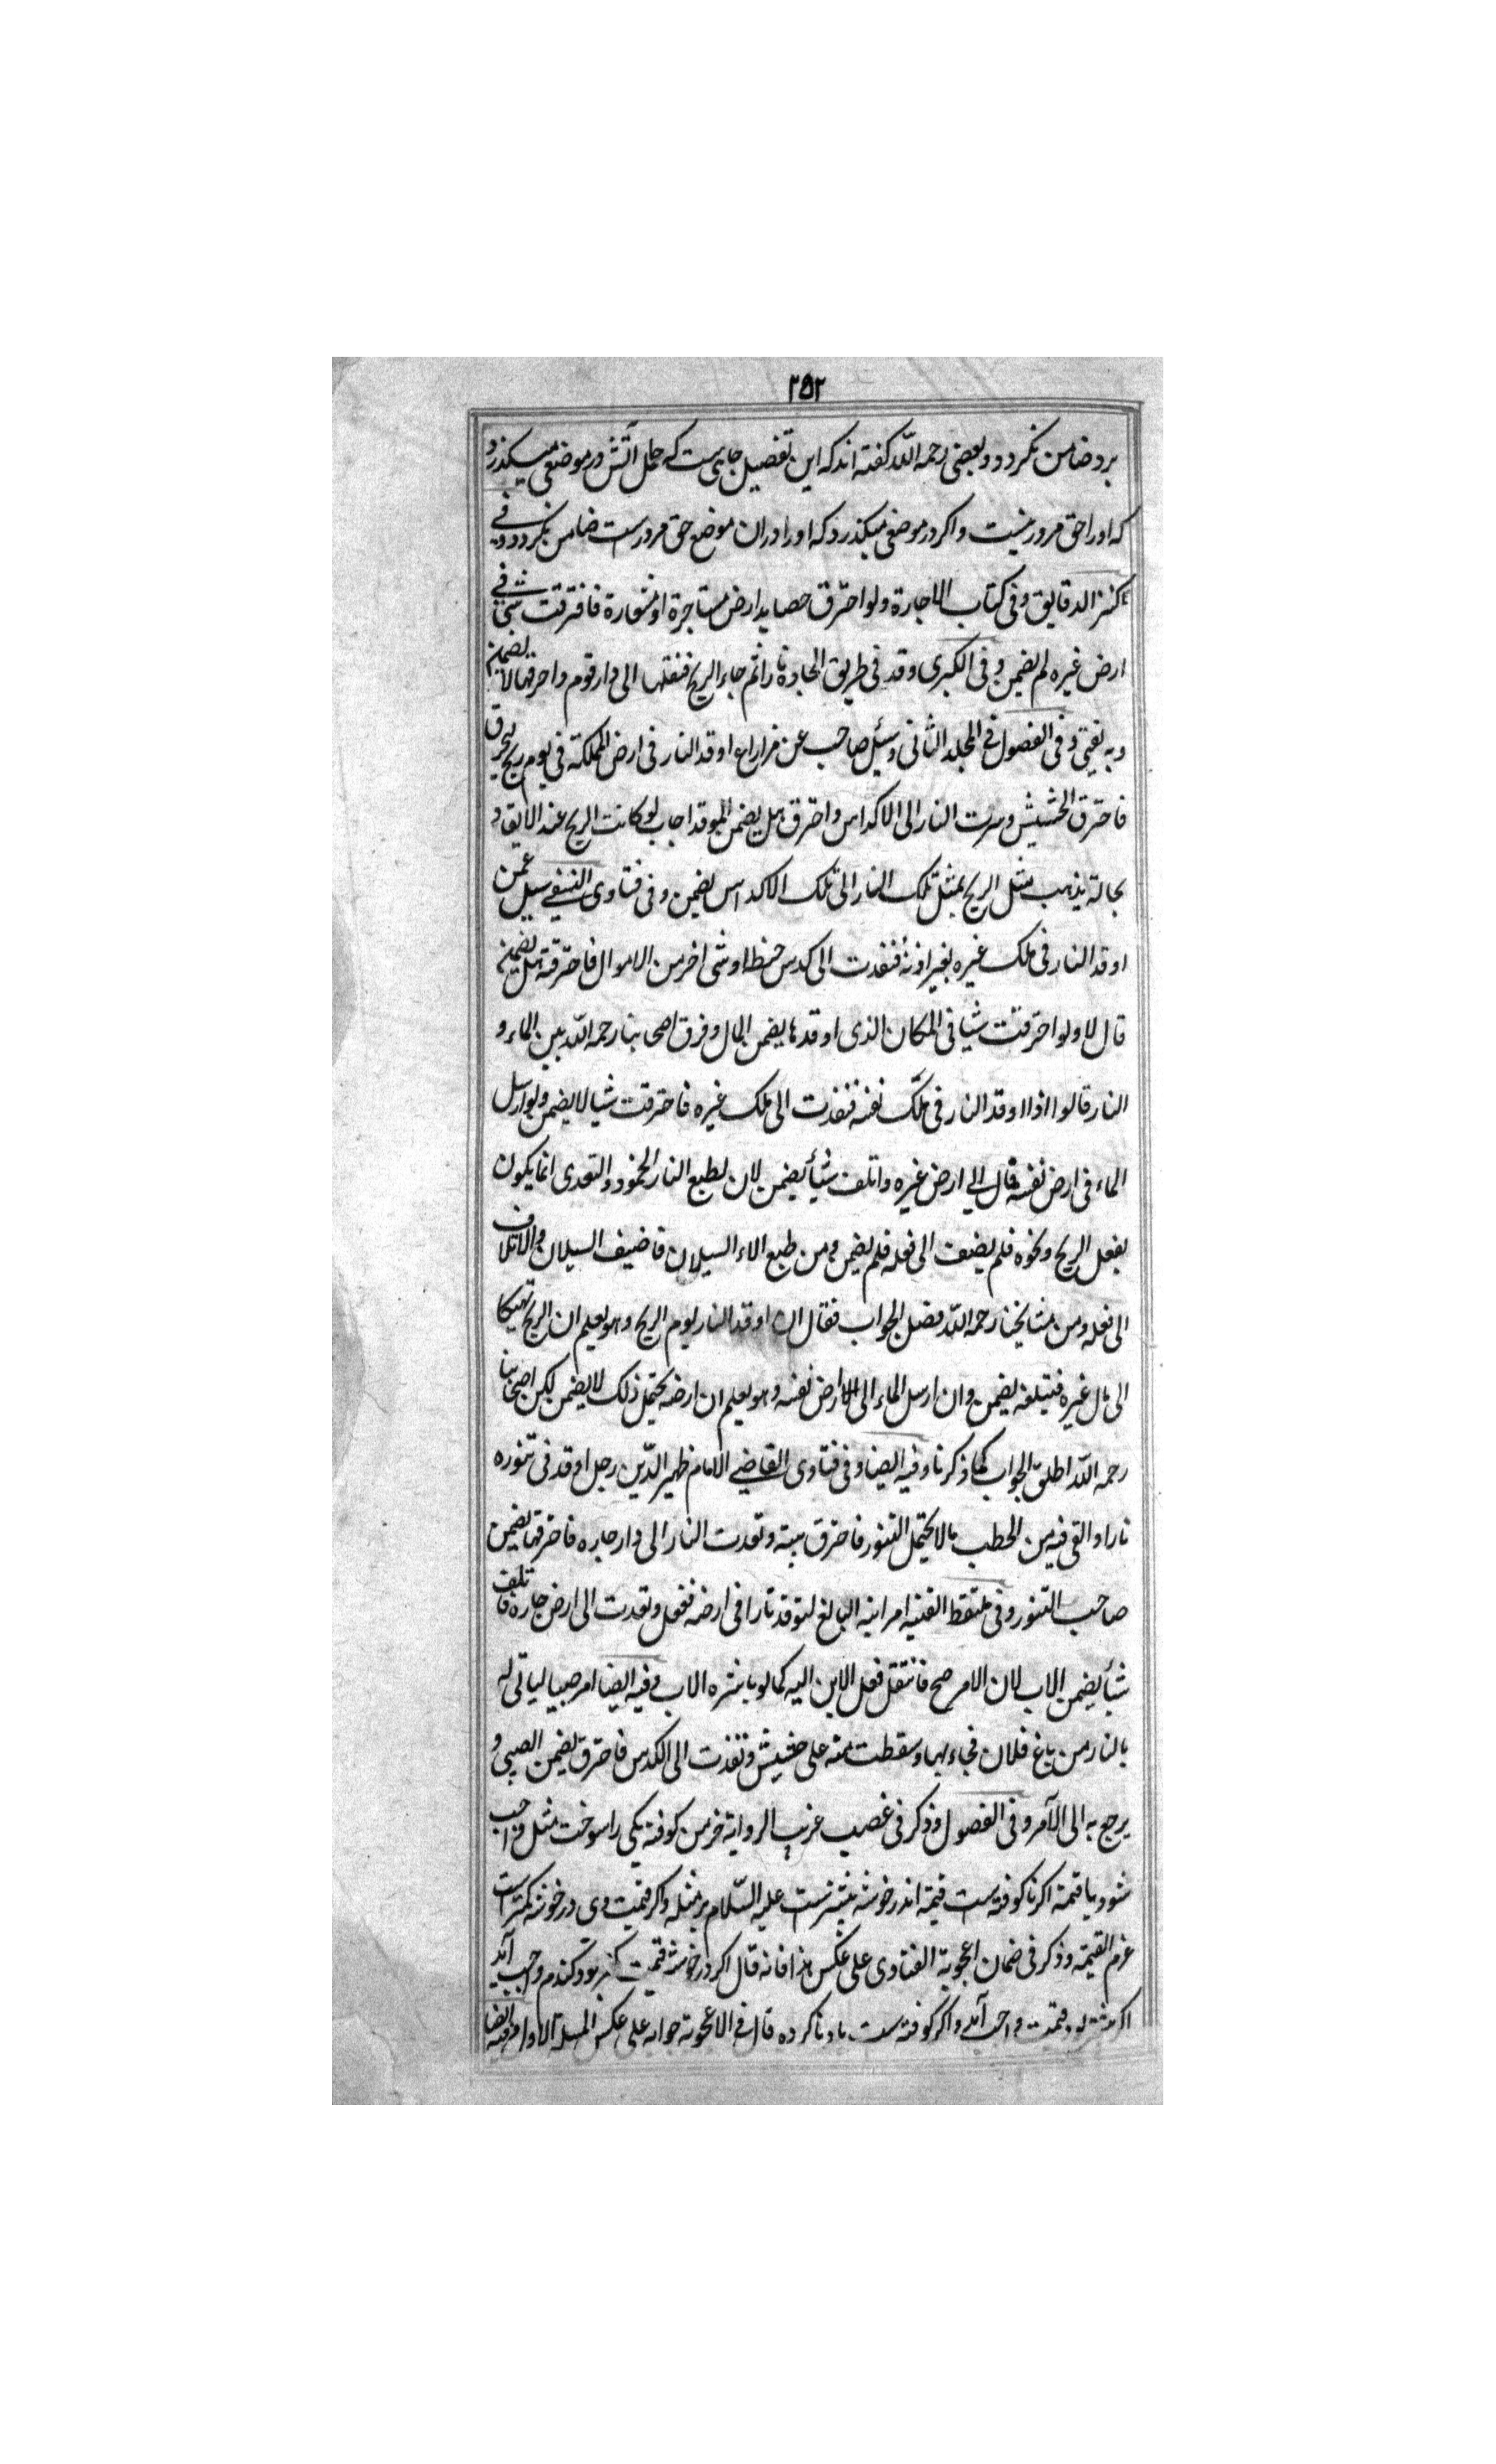 ۲۵۲
برد ضامن نکردد و بعضی رحمه اللّه کفته اند که این تفصیل جایی ست که حامل آتش در موضعی میکذرد
که او را حق مرور نیست و اکر در موضعی میکذرد که او را در ان موضع حق مرورست ضامن نکردد و فی
کنز الدقایق و فی کتاب الاجارة ولو احترق حصاید ارض مستاجرة او مستعارة فاحترقت شی فی
ارض غیره لم یضمن و فی الکبری وقد فی طریق الجادة نارا ثم جاء الریح فنقلها الی دار قوم واحرقها لا یضمن
و به یفتی و فی الفصول فی المجلد الثانی و سئل صاحب عن مزارع اوقد النار فی ارض المملکة فی یوم ریح لیحرق
فاحترق الحشیش و سرت النار الی الاکداس واحترق هل یضمن الموقد اجاب لو کانت الریح عند الایقاد
بحالة یذهب مثل الریح بمثل تلک النار الی تلک الاکداس یضمن و فی فتاوی النسفی سیل عمن
اوقد النار فی ملک غیره بغیر اذنه فنفدت الی کدس حنطة او شی اخر من الاموال فاحترقته هل یضمن
قال لا ولو احترقت شیا فی المکان الذی اوقدها یضمن المال و فرق اصحابنا رحمه اللّه بین الماء و
النار قالوا اذا اوقد النار فی ملک نفسه فنفذت الی ملک غیره فاحترقت شیا لا یضمن ولو ارسل
الماء فی ارض نفسه فسال الی ارض غیره واتلف شیأ یضمن لان لطبع النار الخمود والتعدی انما یکون
بفعل الریح ونحوه فلم یضف الی فعله فلم یضمن ومن طبع الاء السیلان فاضیف السیلان والاتلاف
الی فعله ومن مشایخنا رحمه اللّه فصل الجواب فقال ان اوقد النار یوم الریح وهو یعلم ان الریح
الی مال غیره فیتلفه یضمن وان ارسل الماء الی ارض نفسه وهو یعلم ان ارضه یحتمل ذلک لا یضمن لکن اصحابنا
رحمه اللّه اطلق الجواب کما ذکرنا وفیه ایضا و فی فتاوی القاضی الامام ظهیر الدّین رجل اوقد فی تنوره
نارا والقی فیه من الحطب مالا یحتمل التنور فاحترق بیته وتعدت النار الی دار جاره فاحرقها یضمن
صاحب التنور و فی ملتقط القنیه امر ابنه البالغ لتوقد نارا فی ارضه ففعل وتعدت الی ارض جاره فاتلف
شیأ یضمن الاب لان الامر صح فانتقل فعل الابن الیه کما لو باشره الاب وفیه ایضا امر صبیا لیاتی له
بالنار من باغ فلان فجاء بها وسقطت منه علی حشیش ونفذت الی الکدس فاحترق یضمن الصبی و
یرجع به الی الآمر و فی الفصول وذکر فی غصب غریب الروایة خرمن کوفته یکی را سوخت مثل واجب
شود یا قیمة اکر ناکوفته ست قیمة اندر خوشه بیشترست علیه السّلام بر مثله واکر قیمت وی در خوشه کمترست
غرم القیمة وذکر فی ضمان اعجوبة الفتاوی علی عکس هذا فانه قال اکر در خوشه قیمت بود کندم واجب آید
اکر بیشتر بود قیمت واجب آید واکر کوفته ست باد ناکرده قال فی الاعجوبه جوابه علی عکس المسلة الاولی وفیه ایضا